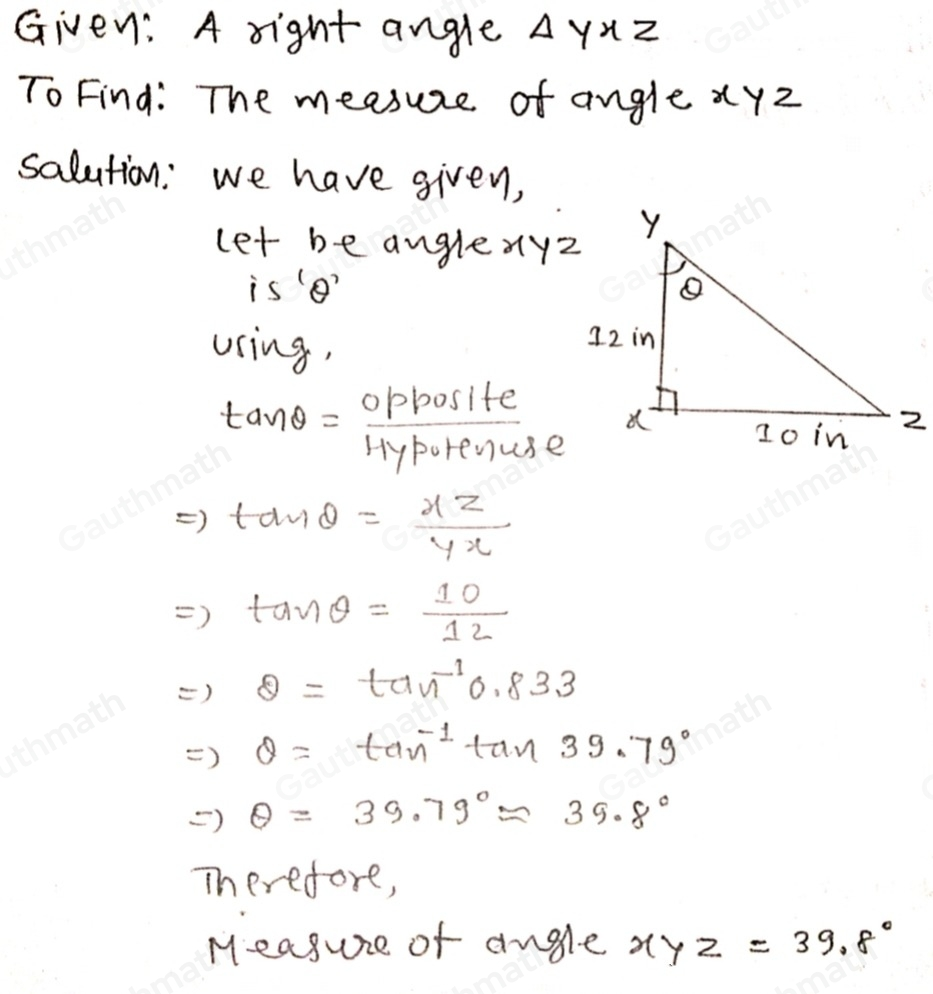 Given: A right angle Δ yxz
To Find: The measure of angle xyz
Salution: we have given,
Let be angle xyz
is 'θ'
using,
tanθ = opposite
Hypotenuse
=) tanθ = xz
yx
=) tanθ = 10
12
=) θ = tan⁻¹ 0.833
=) θ = tan⁻¹ tan 39.79°
=) θ = 39.79° ≈ 39.8°
Therefore,
Measure of angle xyz = 39.8°
Y
θ
12 in
x
10 in
z
Gauthmath